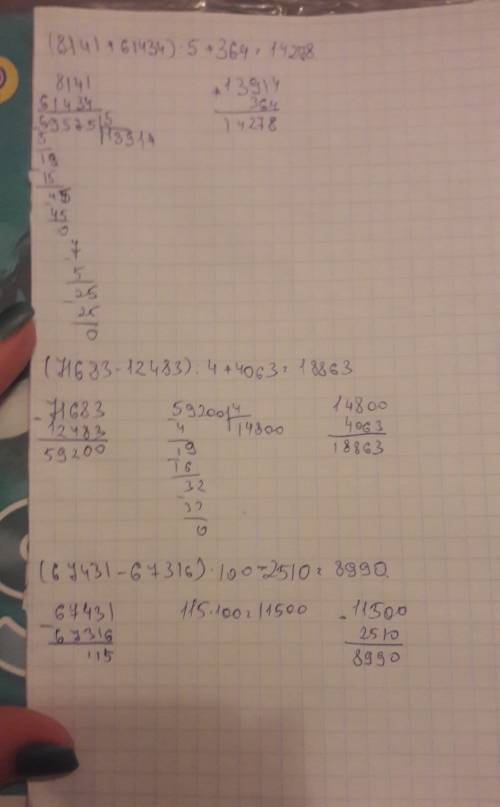 (8141 + 61434) : 5 + 364 = 14278
8141
61434
69575 | 5
13914
5
19
15
45
45
0
7
5
25
25
0
+ 13914
364
14278
(71683 - 12483) : 4 + 4063 = 18863
- 71683
12483
59200
59200 | 4
14800
4
19
16
32
32
0
14800
4063
18863
(67431 - 67316) · 100 - 2510 = 8990
- 67431
67316
115
115 · 100 = 11500
- 11500
2510
8990